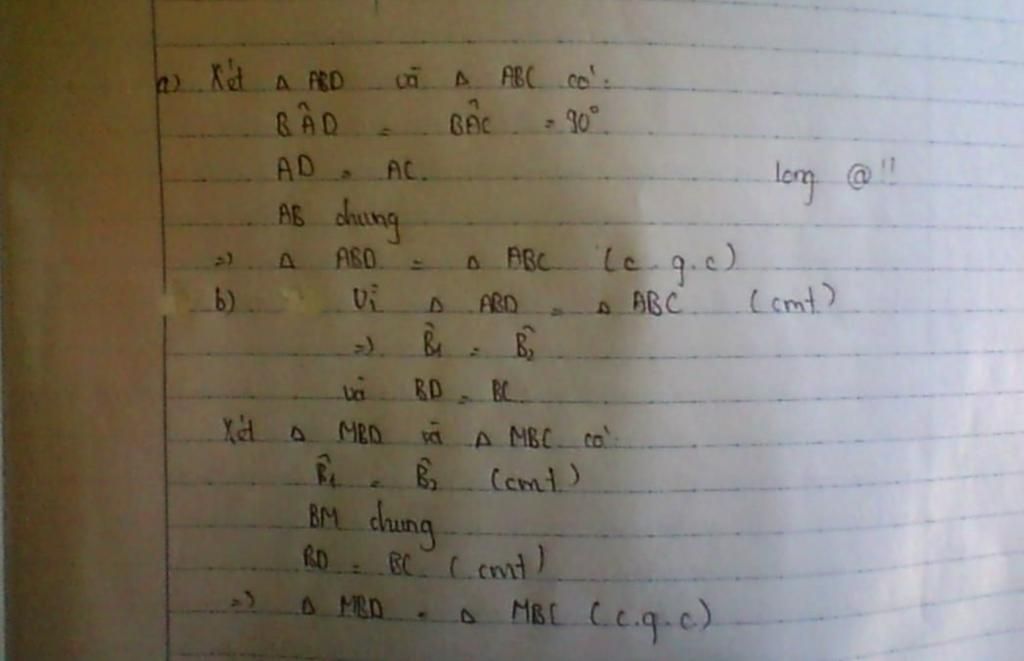 a) Xét Δ ABD và Δ ABC có:
BÂD = BÂC = 90°
AD = AC
long @!!
AB chung
=> Δ ABD = Δ ABC (c.g.c)
b) Vì Δ ABD = Δ ABC (cmt)
=> B̂₁ = B̂₂
và BD = BC
Xét Δ MBD và Δ MBC có:
B̂₁ = B̂₂ (cmt)
BM chung
BD = BC (cmt)
=> Δ MBD = Δ MBC (c.g.c)